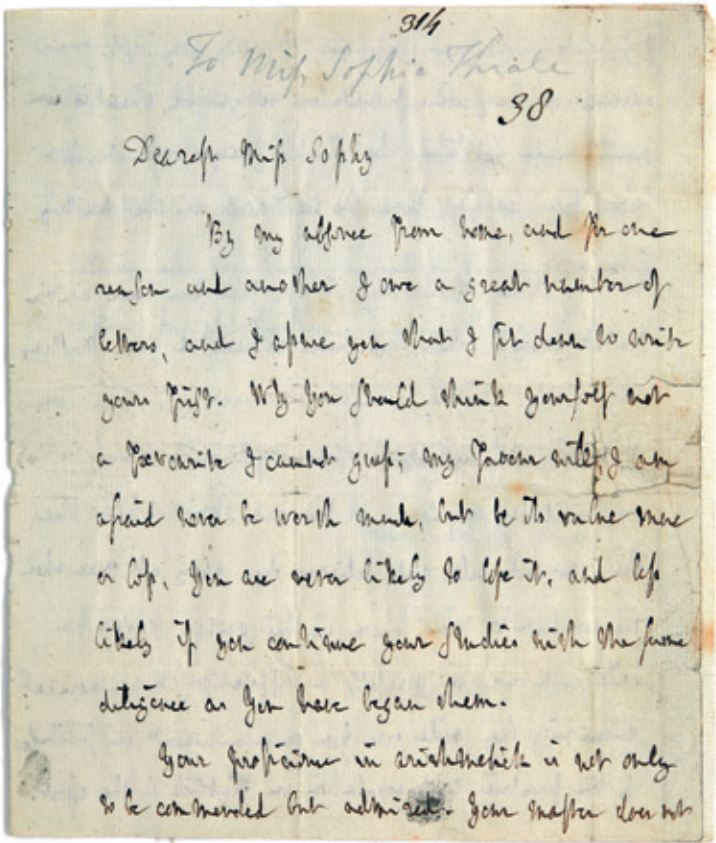 314
To Miss Sophia Thrale
38
Dearest Miss Sophy
By my absence from home, and for one
reason and another I owe a great number of
letters, and I assure you that I sit down to write
yours first. Why you should think yourself not
a favourite I cannot guess; my favour will, I am
afraid never be worth much, but be its value more
or less, you are never likely to lose it, and less
likely if you continue your studies with the same
diligence as you have began them.
Your proficience in arithmetick is not only
to be commended but admired. Your master does not